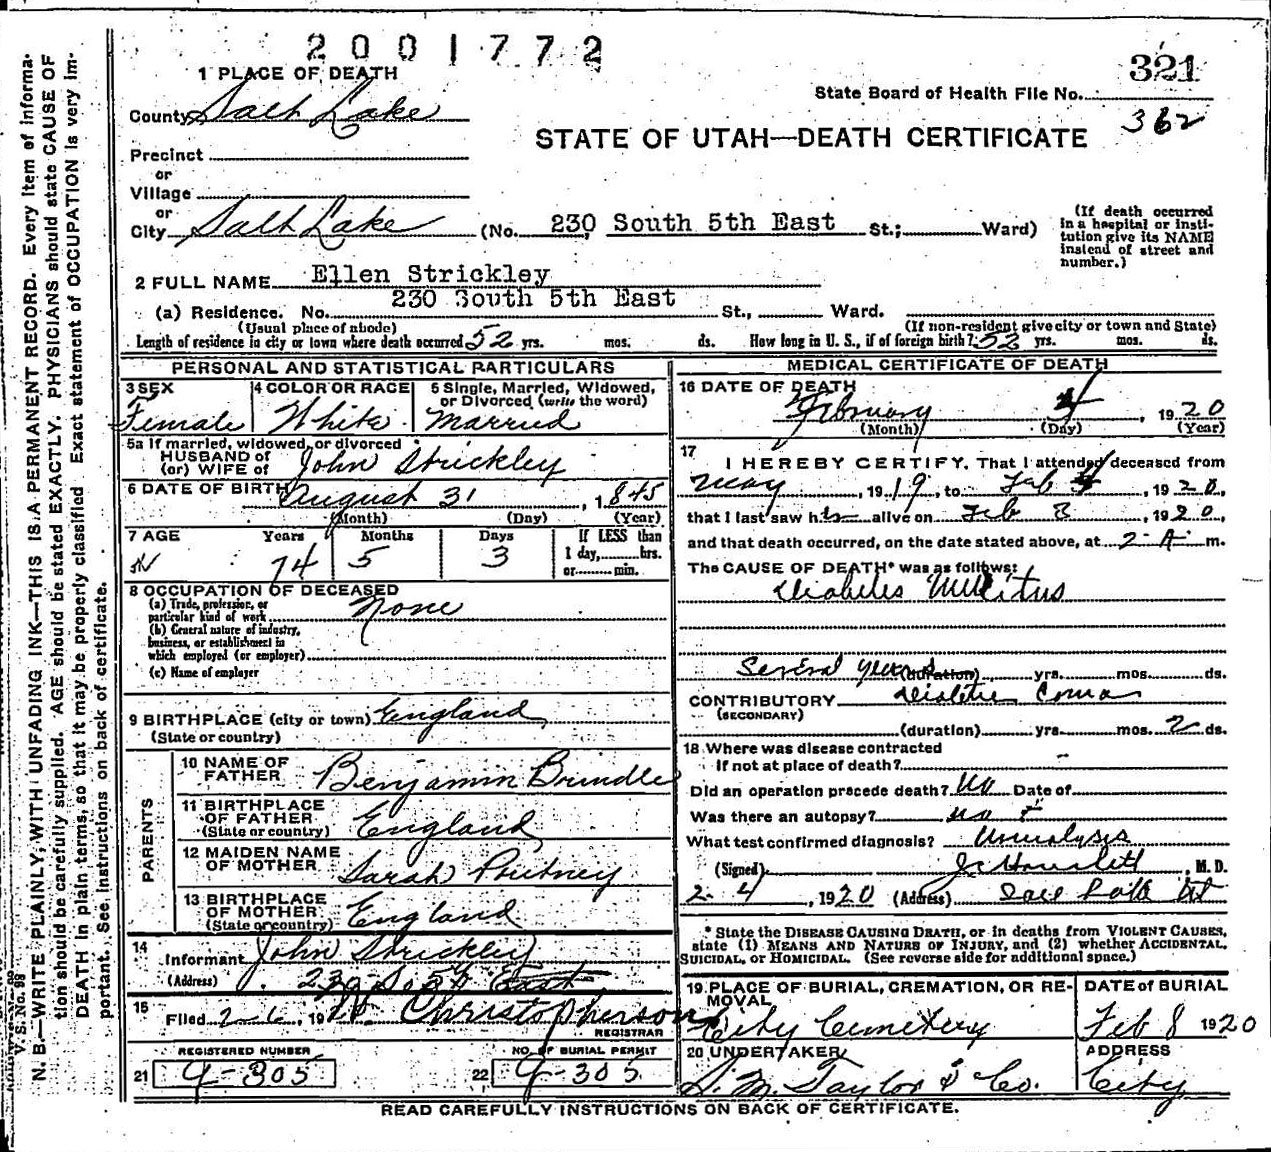 2001772
321
1 PLACE OF DEATH
State Board of Health File No.
County Salt Lake
362
STATE OF UTAH—DEATH CERTIFICATE
Precinct
or
Village
or
City Salt Lake (No. 230 South 5th East St.; Ward)
(If death occurred in a hospital or insti-
tution give its NAME
instead of street and
number.)
2 FULL NAME Ellen Strickley
(a) Residence. No. 230 South 5th East St., Ward.
(Usual place of abode) (If non-resident give city or town and State)
Length of residence in city or town where death occurred 52 yrs. mos. ds. How long in U. S., if of foreign birth? 52 yrs. mos. ds.
PERSONAL AND STATISTICAL PARTICULARS
3 SEX
Female
4 COLOR OR RACE
White
5 Single, Married, Widowed,
or Divorced (write the word)
Married
5a If married, widowed, or divorced
HUSBAND of
(or) WIFE of John Strickley
6 DATE OF BIRTH August 31, 1845
(Month) (Day) (Year)
7 AGE Years Months Days
If LESS than
1 day, hrs.
or min.
74 5 3
8 OCCUPATION OF DECEASED
(a) Trade, profession, or
particular kind of work None
(b) General nature of industry,
business, or establishment in
which employed (or employer)
(c) Name of employer
9 BIRTHPLACE (city or town) England
(State or country)
PARENTS
10 NAME OF
FATHER Benjamin Brindle
11 BIRTHPLACE
OF FATHER
(State or country) England
12 MAIDEN NAME
OF MOTHER Sarah
13 BIRTHPLACE
OF MOTHER
(State or country) England
14
Informant John Strickley
(Address) 230 So 5th East
15
Filed 2-6, 1920. Christopherson
REGISTRAR
REGISTERED NUMBER
21 9-305
NO. OF BURIAL PERMIT
22 9-305
MEDICAL CERTIFICATE OF DEATH
16 DATE OF DEATH
February 4 1920
(Month) (Day) (Year)
17
I HEREBY CERTIFY, That I attended deceased from
May, 1919, to Feb 4, 1920,
that I last saw h alive on Feb 3, 1920,
and that death occurred, on the date stated above, at 2 A. m.
The CAUSE OF DEATH* was as follows:
Diabetes Mellitus
Several years (duration) yrs. mos. ds.
CONTRIBUTORY Diabetic Coma
(SECONDARY)
(duration) yrs. mos. 2 ds.
18 Where was disease contracted
If not at place of death? -
Did an operation precede death? No Date of
Was there an autopsy? no
What test confirmed diagnosis? Urinalysis
(Signed) M. D.
2-4, 1920 (Address) Salt Lake
* State the DISEASE CAUSING DEATH, or in deaths from VIOLENT CAUSES,
state (1) MEANS AND NATURE OF INJURY, and (2) whether ACCIDENTAL,
SUICIDAL, or HOMICIDAL. (See reverse side for additional space.)
19 PLACE OF BURIAL, CREMATION, OR RE-
MOVAL
City Cemetery
DATE of BURIAL
Feb 8 1920
20 UNDERTAKER
S. M. Taylor & Co.
ADDRESS
City
READ CAREFULLY INSTRUCTIONS ON BACK OF CERTIFICATE.
V. S. No. 98
N. B.—WRITE PLAINLY, WITH UNFADING INK—THIS IS A PERMANENT RECORD. Every item of informa-
tion should be carefully supplied. AGE should be stated EXACTLY. PHYSICIANS should state CAUSE OF
DEATH in plain terms, so that it may be properly classified. Exact statement of OCCUPATION is very im-
portant. See instructions on back of certificate.